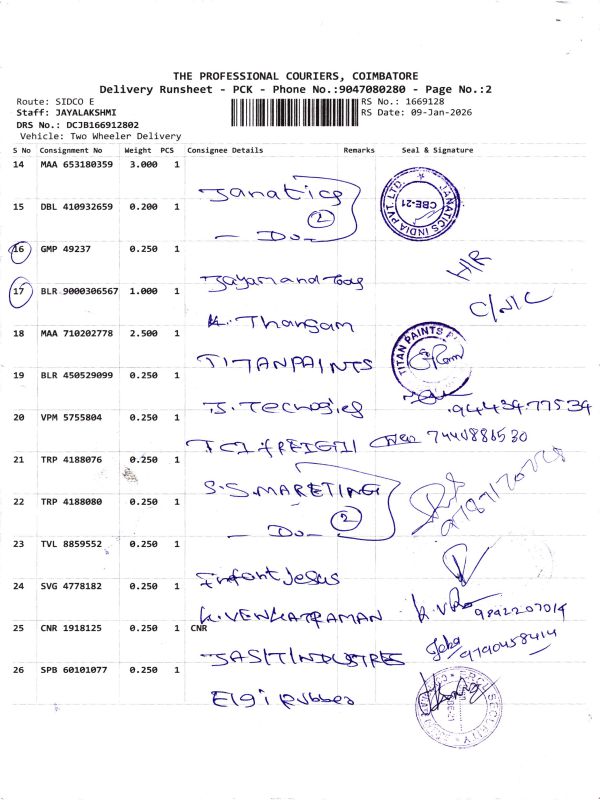 THE PROFESSIONAL COURIERS, COIMBATORE
Delivery Runsheet - PCK - Phone No.:9047080280 - Page No.:2
Route: SIDCO E
RS No.: 1669128
Staff: JAYALAKSHMI
RS Date: 09-Jan-2026
DRS No.: DCJB166912802
Vehicle: Two Wheeler Delivery
S No Consignment No Weight PCS Consignee Details Remarks Seal & Signature
14 MAA 653180359 3.000 1
Janatics
JANATICS INDIA PVT. LTD. CBE-21
15 DBL 410932659 0.200 1
2
- Do -
16 GMP 49237 0.250 1
H/R
17 BLR 9000306567 1.000 1
C/N/C
K. Thangam
18 MAA 710202778 2.500 1
TITAN PAINTS
TITAN PAINTS
19 BLR 450529099 0.250 1
94434 77534
20 VPM 5755804 0.250 1
7440886530
21 TRP 4188076 0.250 1
S.S. MARETING
22 TRP 4188080 0.250 1
2
- Do -
23 TVL 8859552 0.250 1
Infant Jesus
24 SVG 4778182 0.250 1
K. VENKATRAMAN
9842207014
25 CNR 1918125 0.250 1 CNR
9790458414
26 SPB 60101077 0.250 1
Elgi Rubber
SECURITY
CBE-21